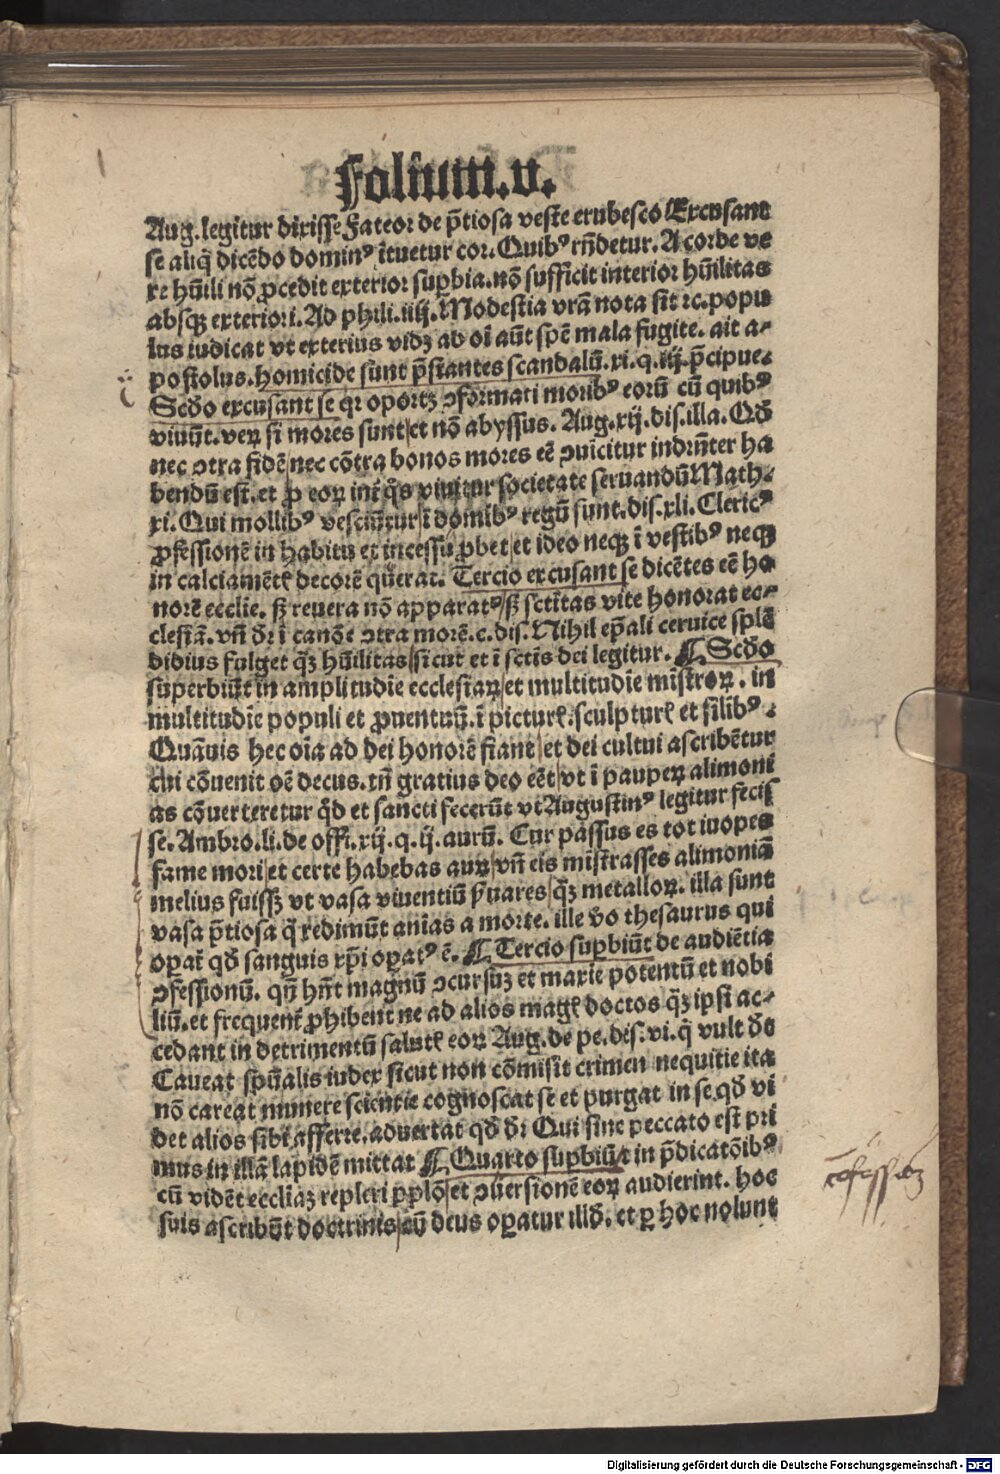 Folium.v.
Aug. legitur dixisse Fateor de p̄tiosa veste erubesco Excusant
se aliq̄ dicẽdo dominꝰ ĩtuetur cor. Quibꝰ rñdetur. A corde ve
re hũili nõ ꝓcedit exterior suꝑbia. nõ sufficit interior hũilitas
absqꝫ exteriori. Ad phili. iiij. Modestia vr̃a nota sit ⁊c. popu
lus iudicat vt exterius vidꝫ ab oĩ aũt spẽ mala fugite. ait a-
postolus. homicide sunt p̄stantes scandalũ. xi. q. iij. p̄cipue.
Scďo excusant se qꝛ oportꝫ ꝯformari moribꝰ eorũ cũ quibꝰ
viuũt. veꝝ si mores sunt et nõ abyssus. Aug. xij. dis. illa. Qď
nec ꝯtra fidẽ nec cõtra bonos mores eẽ ꝯuĩcitur indr̃nter ha
bendũ est. et ꝓ eoꝝ int̃ q̃s viuitur societate seruandũ Math.
xi. Qui mollibꝰ vesciũtur ĩ domibꝰ regũ sunt. dis. xli. Clericꝰ
ꝓfessionẽ in habitu et incessu ꝓbet et ideo neqꝫ ĩ vestibꝰ neqꝫ
in calciamẽtꝭ decorẽ q̃rat. Tercio excusant se dicẽtes eẽ ho
norẽ ecclie. sꝫ reuera nõ apparatꝰ sꝫ sctĩtas vite honorat ec-
clesiã. vñ dr̃ ĩ canõe ꝯtra morẽ. c. dis. Nihil ep̃ali ceruice splẽ
didius fulget q̃ꝫ hũilitas sicut et ĩ sctĩs dei legitur. ¶ Scďo
superbiũt in amplitudĩe ecclesiaꝝ et multitudĩe mĩstroꝝ. in
multitudĩe populi et ꝓuentuũ. ĩ picturꝭ. sculpturꝭ et sĩlibꝰ.
Quãuis hec oĩa ad dei honorẽ fiant et dei cultui ascribẽtur
cui cõuenit oẽ decus. tñ gratius deo eẽt vt ĩ paupeꝝ alimoni
as cõuerteretur q̃d et sancti fecerũt vt Augustinꝰ legitur fecis
se. Ambro. li. de offi. xij. q. ij. aurũ. Cur passus es tot inopes
fame mori et certe habebas auꝝ vñ eis mĩstrasses alimoniã
melius fuissꝫ vt vasa viuentiũ p̃uares q̃ꝫ metalloꝝ. illa sunt
vasa p̄tiosa q̃ redimũt aĩas a morte. ille ṽo thesaurus qui
oꝑat̃ qď sanguis xp̃i oꝑatꝰ ẽ. ¶ Tercio suꝑbiũt de audiẽtia
ꝯfessionũ. qñ hñt magnũ ꝯcursũꝫ et maxie potentũ et nobi
liũ. et frequent̃ ꝓhibent ne ad alios magꝭ doctos q̃ꝫ ipsi ac-
cedant in detrimentũ salutꝭ eoꝝ Aug. de pe. dis. vi. q̃ vult ďo
Caueat spũalis iudex sicut non cõmisit crimen nequitie ita
nõ careat munere scientie cognoscat se et purgat in se qď vi
det alios sibi afferre. aduertat qď dr̃ Qui sine peccato est pri
mus in illã lapidẽ mittat ¶ Quarto suꝑbiũt in p̄dicatõibꝰ
cũ vidẽt eccliaꝫ repleri pp̃lõ et ꝯuersionẽ eoꝝ audierint. hoc
suis ascribũt doctrinis cũ deus oꝑatur illď. et ꝑ hoc nolunt
Digitalisierung gefördert durch die Deutsche Forschungsgemeinschaft - DFG